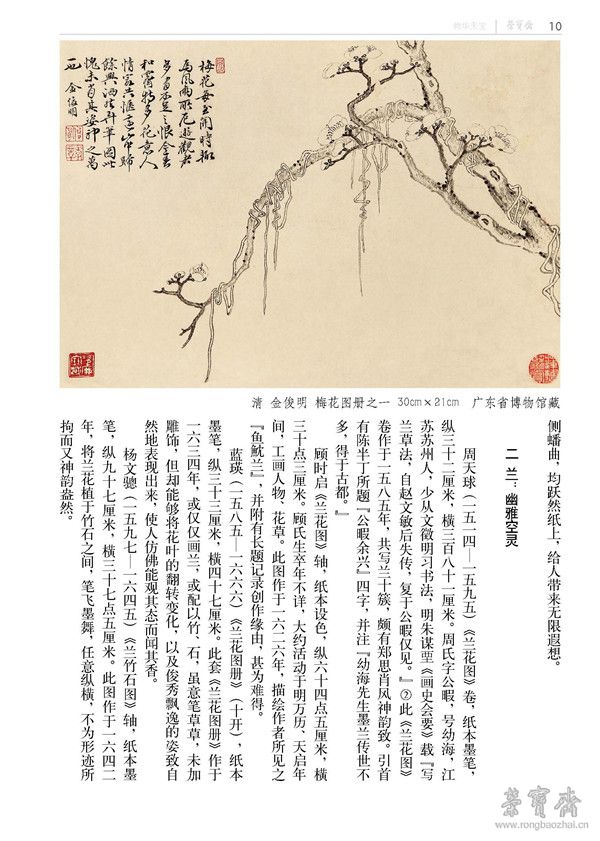 物华天宝 榮寶齋 10
梅花每至開時輒
爲風雨所厄遊觀者
多有不足之恨今春
和霽特多花意人
餘興洒
愧未肖其姿神之萬
一 金俊明
清 金俊明 梅花图册之一 30cm×21cm 广东省博物馆藏
侧蟠曲，均跃然纸上，给人带来无限遐想。
二 兰：幽雅空灵
周天球（一五一四—一五九五）《兰花图》卷，纸本墨笔，
纵三十二厘米，横三百八十一厘米。周氏字公暇，号幼海，江
苏苏州人，少从文徵明习书法，明朱谋垔《画史会要》载『写
兰草法，自赵文敏后失传，复于公暇仅见。』②此《兰花图》
卷作于一五八五年，共写兰十簇，颇有郑思肖风神韵致。引首
有陈半丁所题『公暇余兴』四字，并注『幼海先生墨兰传世不
多，得于古都。』
顾时启《兰花图》轴，纸本设色，纵六十四点五厘米，横
三十点三厘米。顾氏生卒年不详，大约活动于明万历、天启年
间，工画人物、花草。此图作于一六二六年，描绘作者所见之
『鱼魫兰』，并附有长题记录创作缘由，甚为难得。
蓝瑛（一五八五—一六六六）《兰花图册》（十开），纸本
墨笔，纵三十三厘米，横四十七厘米。此套《兰花图册》作于
一六三四年，或仅仅画兰，或配以竹、石，虽意笔草草，未加
雕饰，但却能够将花叶的翻转变化，以及俊秀飘逸的姿致自
然地表现出来，使人仿佛能观其态而闻其香。
杨文骢（一五九七—一六四五）《兰竹石图》轴，纸本墨
笔，纵九十七厘米，横三十七点五厘米。此图作于一六四二
年，将兰花植于竹石之间，笔飞墨舞，任意纵横，不为形迹所
拘而又神韵盎然。
榮寶齋
www.rongbaozhai.cn